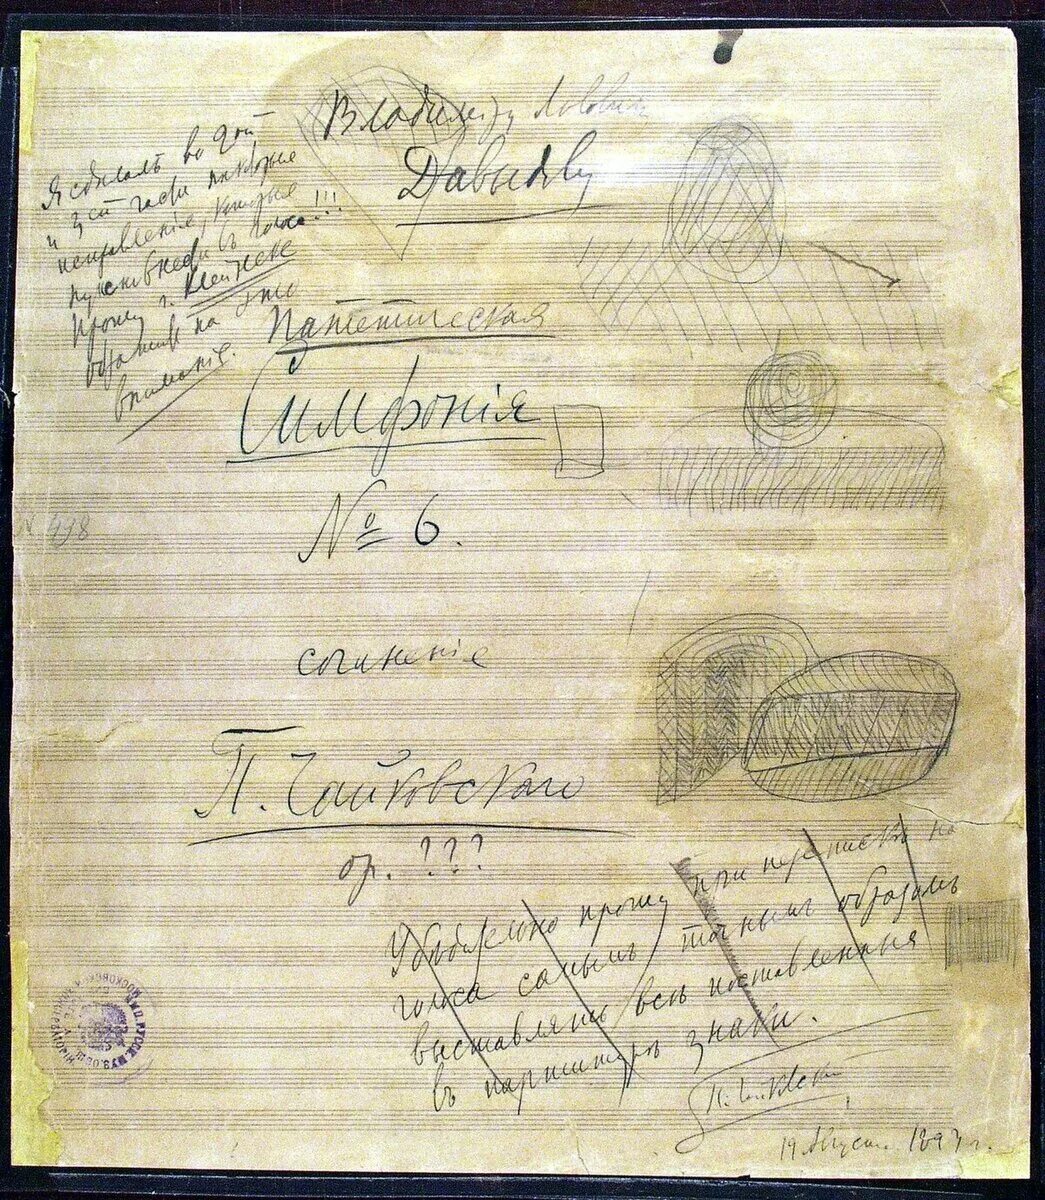 Владимиру Львовичу
Давыдову
Я сделалъ во 2ой
и 3ей части некоторые
исправленія, которые
нужно внести въ голоса!!!
Прошу г.
обратить на это
вниманіе.
Патетическая
Симфонія
№ 6.
498
сочиненіе
П. Чайковскаго
ор. ???
Убедительно прошу при переписке на
голоса самымъ точнымъ образомъ
выставлять все поставленные
въ партитуре знаки.
П. Чайковскій
19 Августа 1893 г.